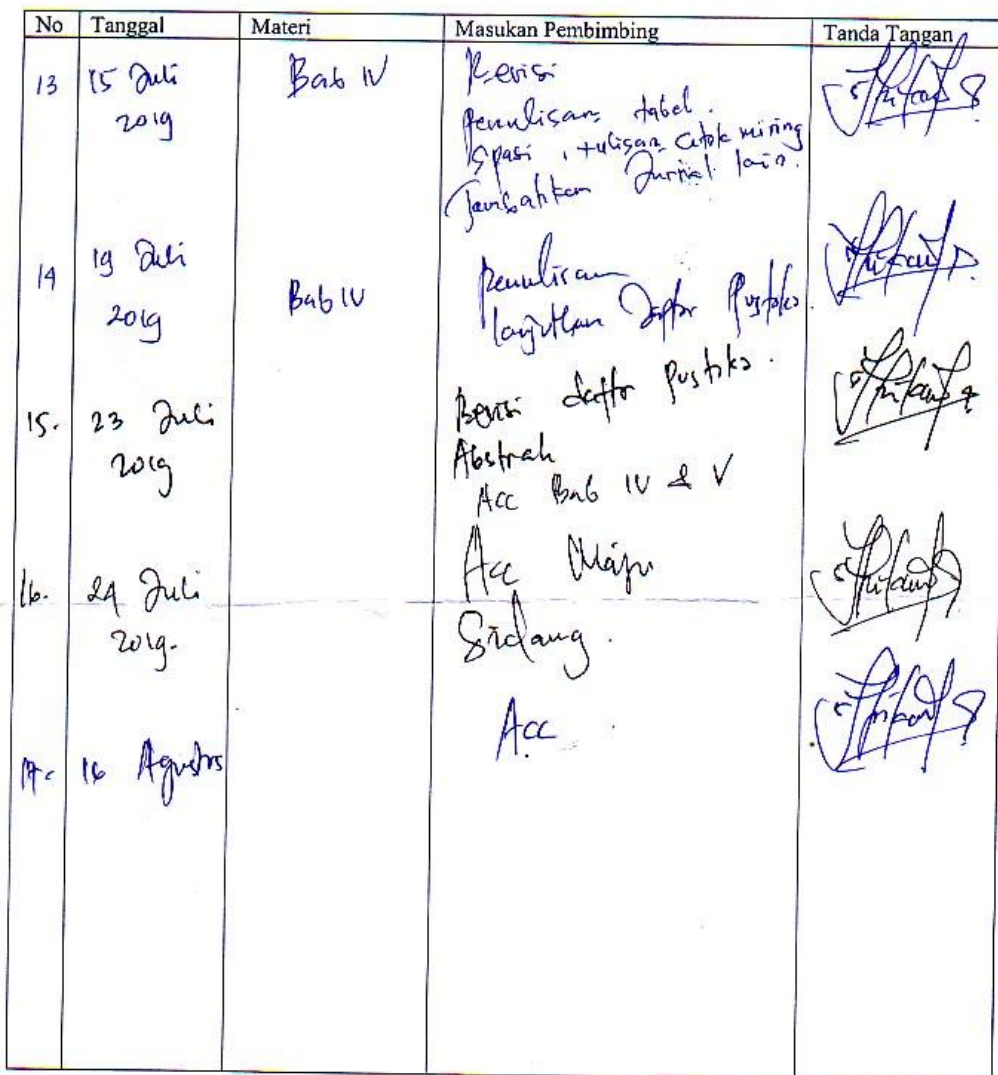 No Tanggal Materi Masukan Pembimbing Tanda Tangan
13 15 Juli 2019 Bab IV Revisi
Penulisan tabel.
Spasi, tulisan cetak miring
Tambahkan Jurnal lain.
14 19 Juli 2019 Bab IV Penulisan
lanjutkan Daftar Pustaka.
15. 23 Juli 2019 Revisi daftar pustaka.
Abstrak
Acc Bab IV & V
16. 24 Juli 2019. Acc Maju
Sidang.
17. 16 Agustus Acc